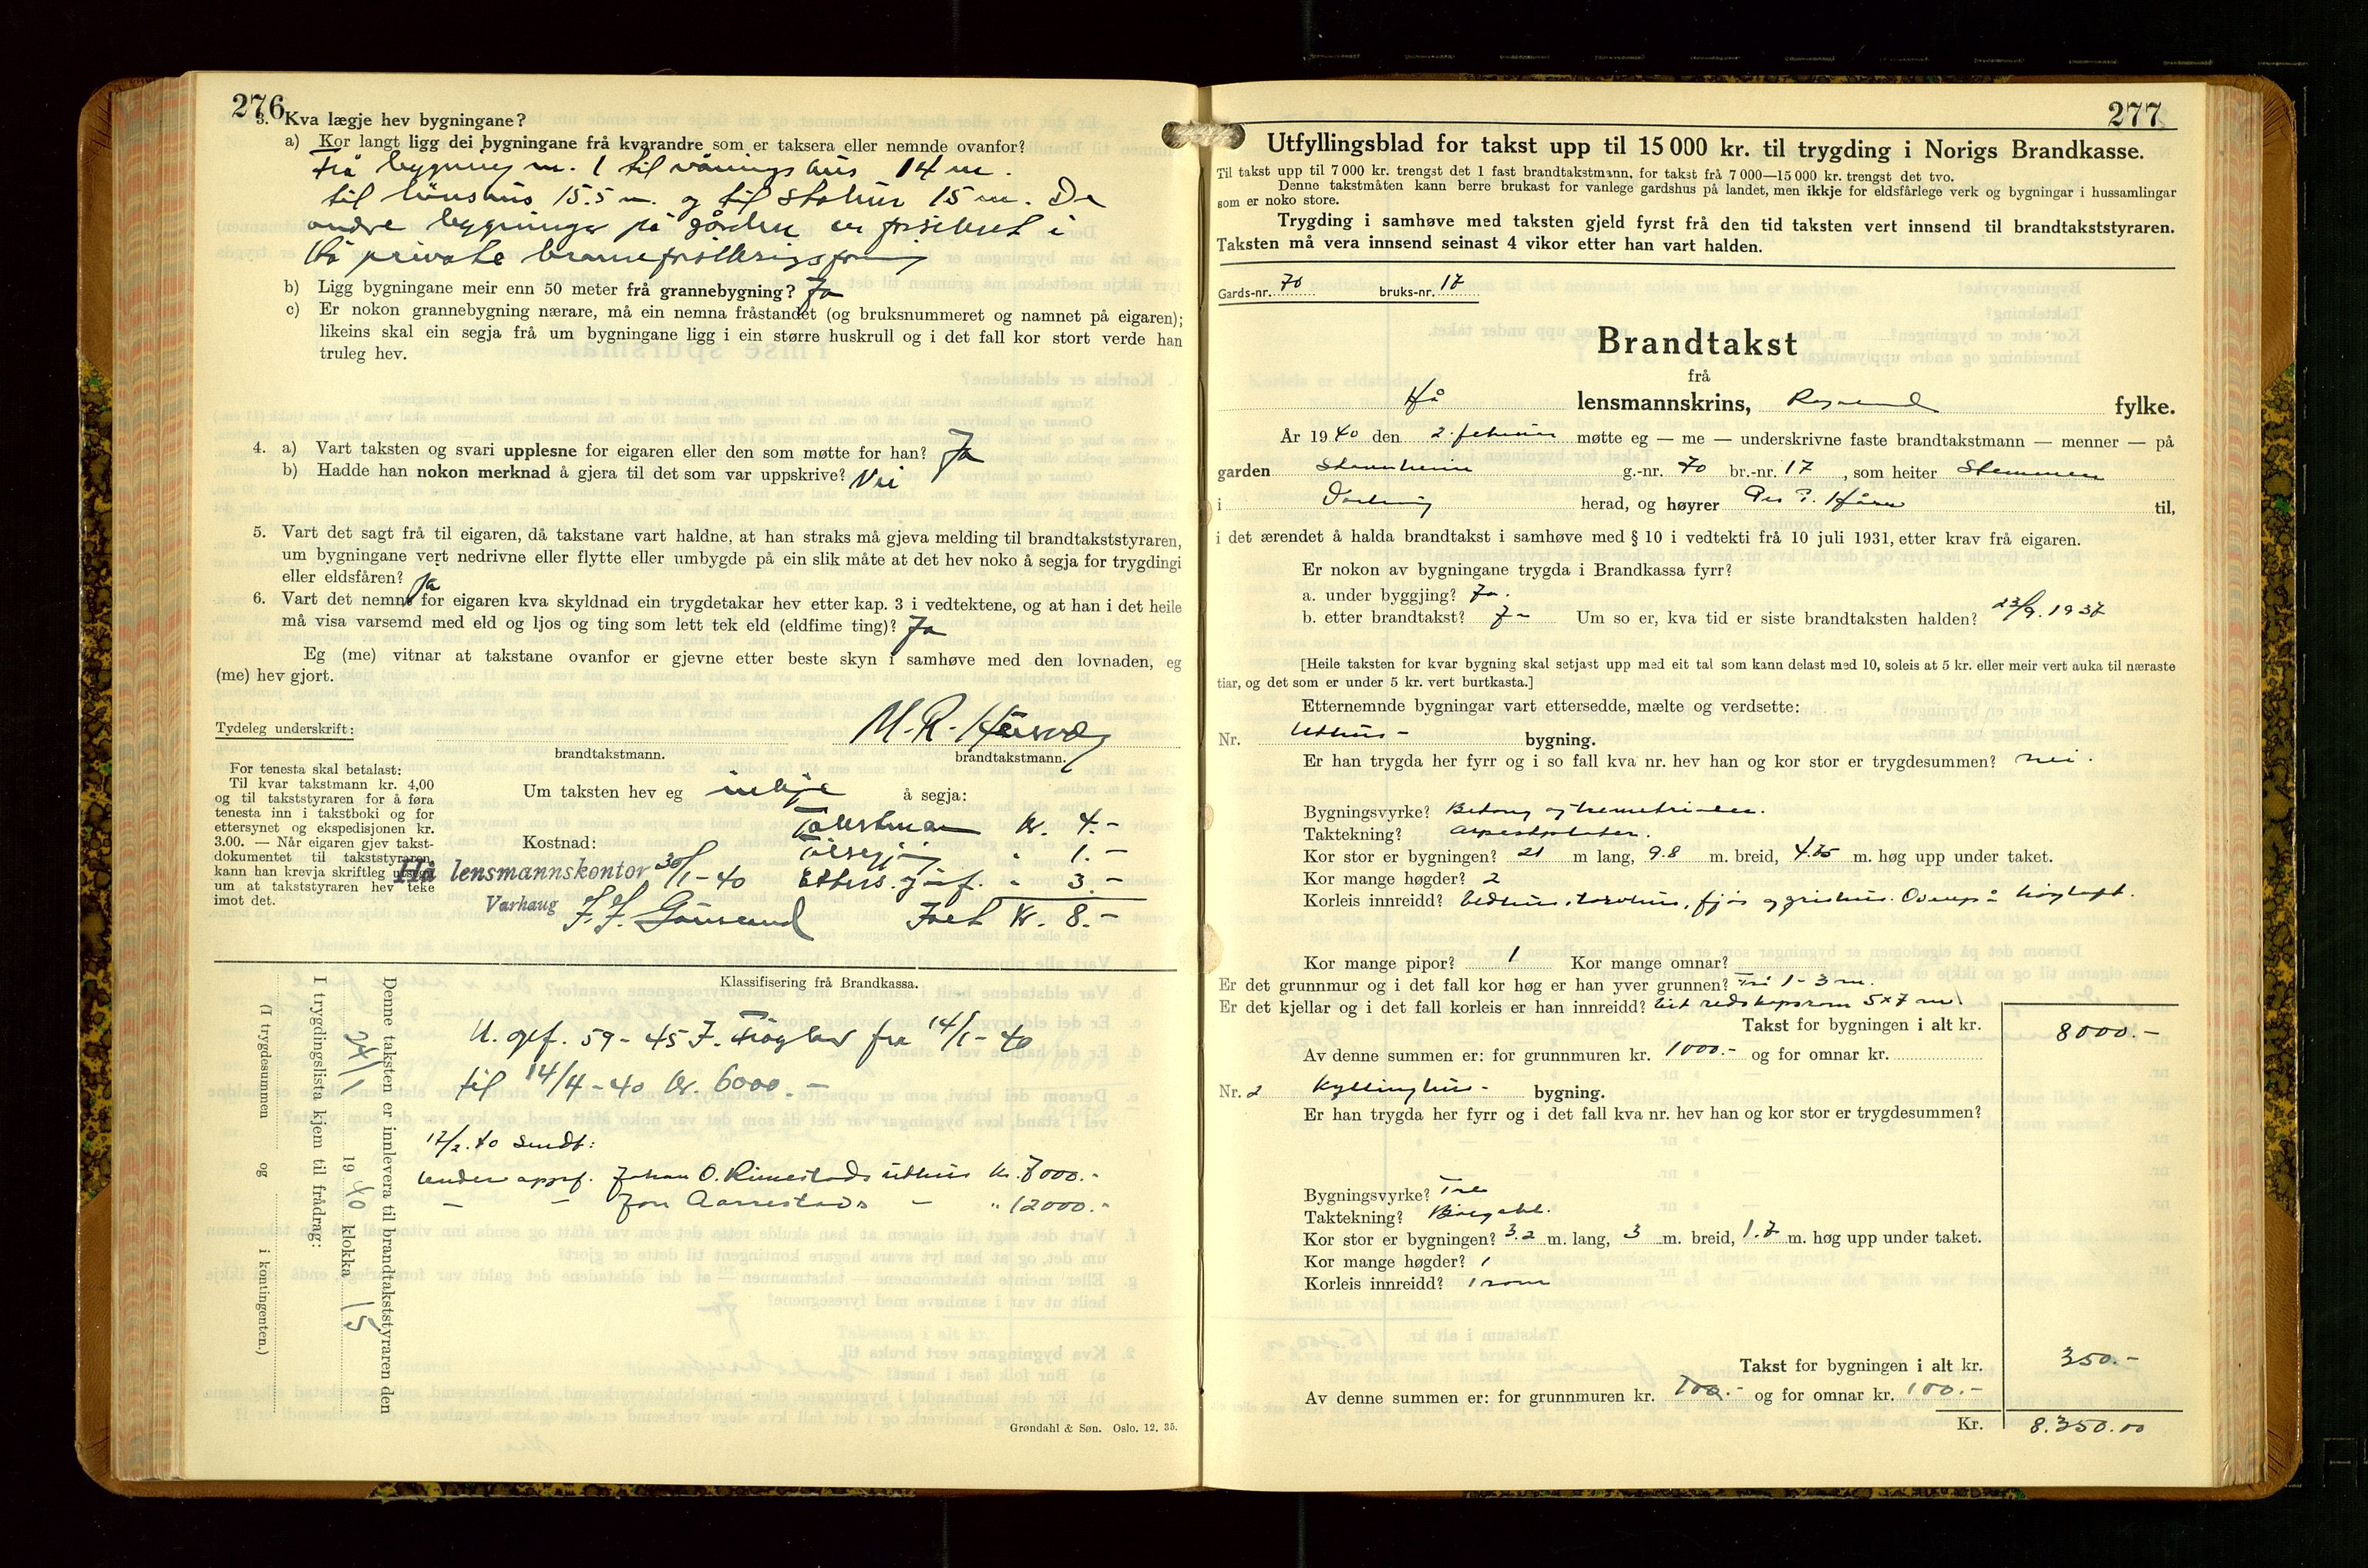 276
3. Kva lægje hev bygningane?
a) Kor langt ligg dei bygningane frå kvarandre som er taksera eller nemnde ovanfor?
Frå bygning nr. 1 til våningshus 14 m.
til hønshus 15.5 m. og til stabur 15 m. De
andre bygninger på gården er forsikret i
Hå private brannforsikringsforening
b) Ligg bygningane meir enn 50 meter frå grannebygning? Ja
c) Er nokon grannebygning nærare, må ein nemna fråstandet (og bruksnummeret og namnet på eigaren);
likeins skal ein segja frå um bygningane ligg i ein større huskrull og i det fall kor stort verde han
truleg hev.
4. a) Vart taksten og svari upplesne for eigaren eller den som møtte for han? Ja
b) Hadde han nokon merknad å gjera til det som var uppskrive? Nei
5. Vart det sagt frå til eigaren, då takstane vart haldne, at han straks må gjeva melding til brandtakststyraren,
um bygningane vert nedrivne eller flytte eller umbygde på ein slik måte at det hev noko å segja for trygdingi
eller eldsfåren? Ja
6. Vart det nemnt for eigaren kva skyldnad ein trygdetakar hev etter kap. 3 i vedtektene, og at han i det heile
må visa varsemd med eld og ljos og ting som lett tek eld (eldfime ting)? Ja
Eg (me) vitnar at takstane ovanfor er gjevne etter beste skyn i samhøve med den lovnaden, eg
(me) hev gjort.
Tydeleg underskrift: M. R.
brandtakstmann. brandtakstmann.
For tenesta skal betalast:
Til kvar takstmann kr. 4,00
og til takststyraren for å føra
tenesta inn i takstboki og for
ettersynet og ekspedisjonen kr.
3.00. — Når eigaren gjev takst-
dokumentet til takststyraren,
kann han krevja skriftleg utsegn
um at takststyraren hev teke
imot det.
Um taksten hev eg inkje å segja:
Kostnad:
Takstmann kr. 4.-
Tilsegjing " 1.-
Etters. " 3.-
Hå lensmannskontor 30/1-40
Varhaug
Ialt kr. 8.-
Klassifisering frå Brandkassa.
U. opf. 59-45 J. Træglav fra 14/1-40
til 14/4-40 kr. 6000.-
17/2.40 sendt:
Under oppf. Johan O. Rimestads uthus kr. 8000.-
- - Jon Aarrestads - " 12000.-
Denne taksten er innlevera til brandtakststyraren den
24/1 1940 klokka 15
I trygdingslista kjem til frådrag:
(I trygdesummen og i kontingenten.)
Grøndahl & Søn. Oslo. 12. 35.
277
Utfyllingsblad for takst upp til 15 000 kr. til trygding i Norigs Brandkasse.
Til takst upp til 7 000 kr. trengst det 1 fast brandtakstmann, for takst frå 7 000—15 000 kr. trengst det tvo.
Denne takstmåten kann berre brukast for vanlege gardshus på landet, men ikkje for eldsfårlege verk og bygningar i hussamlingar
som er noko store.
Trygding i samhøve med taksten gjeld fyrst frå den tid taksten vert innsend til brandtakststyraren.
Taksten må vera innsend seinast 4 vikor etter han vart halden.
Gards-nr. 70 bruks-nr. 17
Brandtakst
frå
Hå lensmannskrins, Rogaland fylke.
År 1940 den 2. februar møtte eg — me — underskrivne faste brandtakstmann — menner — på
garden g.-nr. 70 br.-nr. 17, som heiter
i herad, og høyrer til,
i det ærendet å halda brandtakst i samhøve med § 10 i vedtekti frå 10 juli 1931, etter krav frå eigaren.
Er nokon av bygningane trygda i Brandkassa fyrr?
a. under byggjing? Ja.
b. etter brandtakst? J- Um so er, kva tid er siste brandtaksten halden? 23/9. 1937
[Heile taksten for kvar bygning skal setjast upp med eit tal som kann delast med 10, soleis at 5 kr. eller meir vert auka til næraste
tiar, og det som er under 5 kr. vert burtkasta.]
Etternemnde bygningar vart ettersedde, mælte og verdsette:
Nr. Uthus- bygning.
Er han trygda her fyrr og i so fall kva nr. hev han og kor stor er trygdesummen? nei.
Bygningsvyrke? Betong og
Taktekning?
Kor stor er bygningen? 21 m lang, 9.8 m. breid, 4.75 m. høg upp under taket.
Kor mange høgder? 2
Korleis innreidd? Vedhus, torvhus, fjøs og grishus. Ovenpå høyloft.
Kor mange pipor? 1 Kor mange omnar?
Er det grunnmur og i det fall kor høg er han yver grunnen? 1-3 m.
Er det kjellar og i det fall korleis er han innreidd? Eit redskapsrom 5x7 m.
Takst for bygningen i alt kr. 8000.-
Av denne summen er: for grunnmuren kr. 1000.- og for omnar kr.
Nr. 2 Kyllinghus- bygning.
Er han trygda her fyrr og i det fall kva nr. hev han og kor stor er trygdesummen?
Bygningsvyrke? Tre
Taktekning?
Kor stor er bygningen? 3.2 m. lang, 3 m. breid, 1.7 m. høg upp under taket.
Kor mange høgder? 1
Korleis innreidd? 1 rom
Takst for bygningen i alt kr. 350.-
Av denne summen er: for grunnmuren kr. 100.- og for omnar kr. 100.-
Kr. 8.350.00